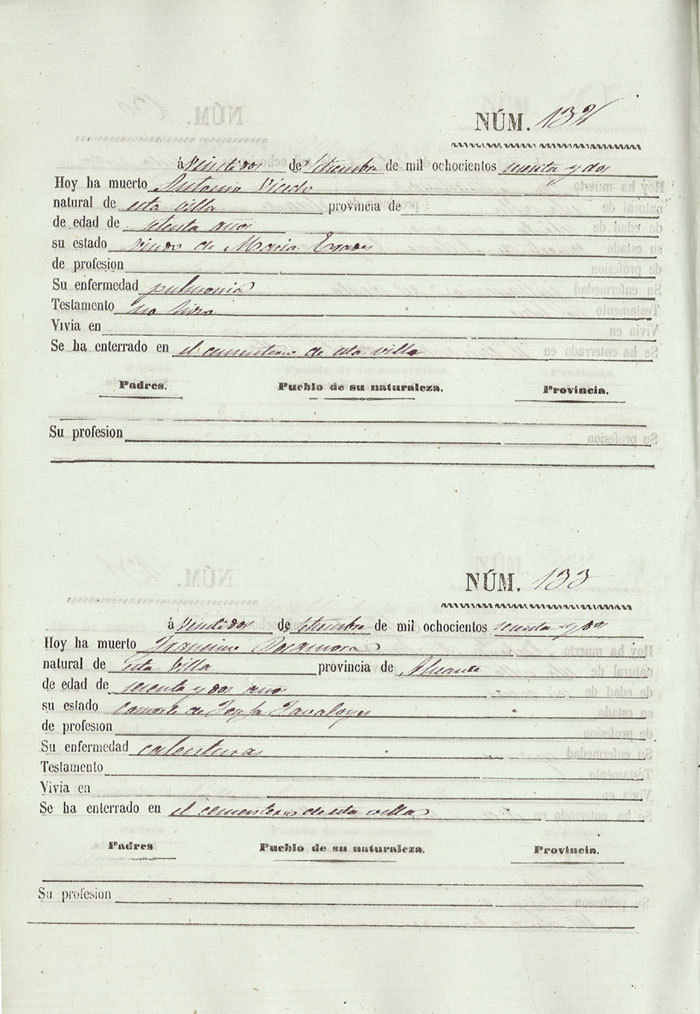 NÚM. 132
á Veintidos de Setiembre de mil ochocientos sesenta y dos
Hoy ha muerto Antonio Vicedo
natural de esta villa provincia de
de edad de setenta años
su estado Viudo de Maria
de profesion
Su enfermedad pulmonia
Testamento no hizo
Vivia en
Se ha enterrado en el cementerio de esta villa
Padres. Pueblo de su naturaleza. Provincia.
Su profesion
NÚM. 133
á Veintidos de Setiembre de mil ochocientos sesenta y dos
Hoy ha muerto Rocamora
natural de esta Villa provincia de Alicante
de edad de sesenta y dos años
su estado Consorte de
de profesion
Su enfermedad calenturas
Testamento
Vivia en
Se ha enterrado en el cementerio de esta villa
Padres Pueblo de su naturaleza. Provincia.
Su profesion